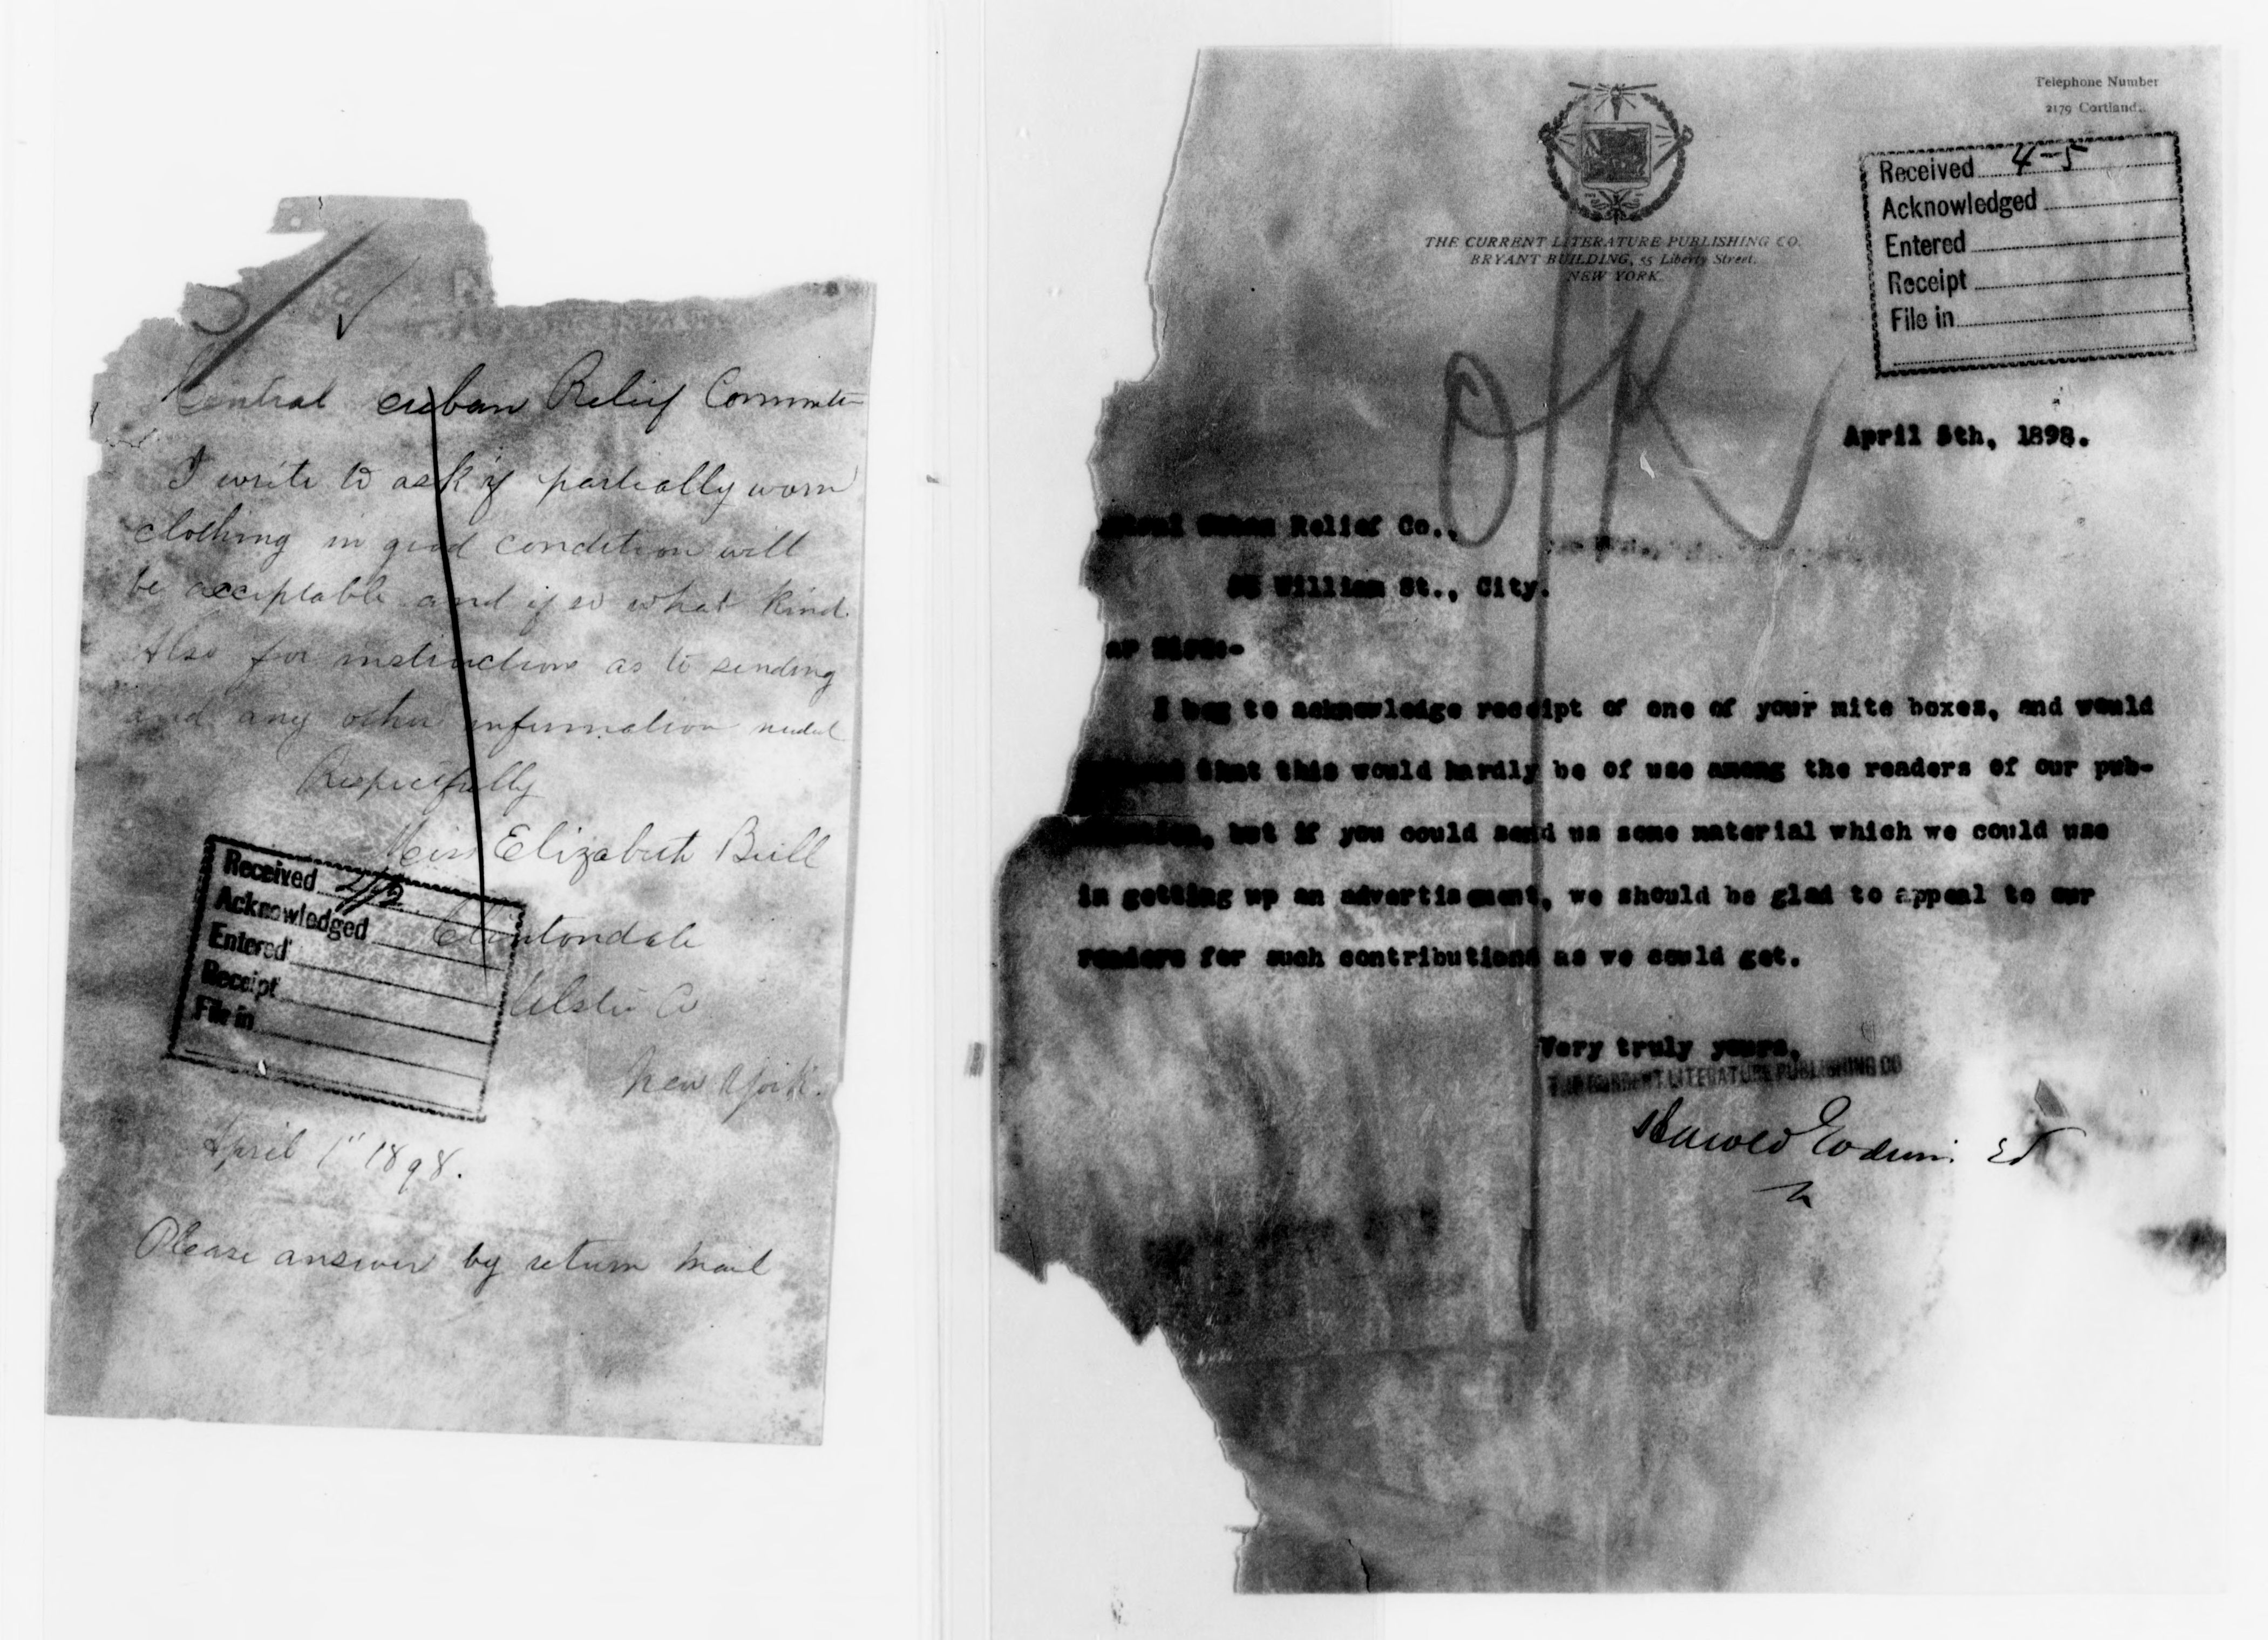 Central Cuban Relief Committe
I write to ask if partially worn
clothing in good condition will
be acceptable and if so what kind.
Also for instructions as to sending
and any other information needed
Respectfully
Miss Elizabeth Brill
Clintondale
Ulster Co
New York.
Received
Acknowledged
Entered
Receipt
File in
April 1" 1898.
Please answer by return mail
Telephone Number
2179 Cortland
THE CURRENT LITERATURE PUBLISHING CO.
BRYANT BUILDING, 55 Liberty Street.
NEW YORK
Received 4-5
Acknowledged
Entered
Receipt
File in
OK
April 5th, 1898.
Cuban Relief Co.,
William St., City.
ar Sirs:-
I beg to acknowledge receipt of one of your mite boxes, and would
that this would hardly be of use among the readers of our pub-
but if you could send us some material which we could use
in getting up an advertisement, we should be glad to appeal to our
readers for such contributions as we could get.
Very truly yours,
THE CURRENT LITERATURE PUBLISHING CO
Harold Godwin Ed